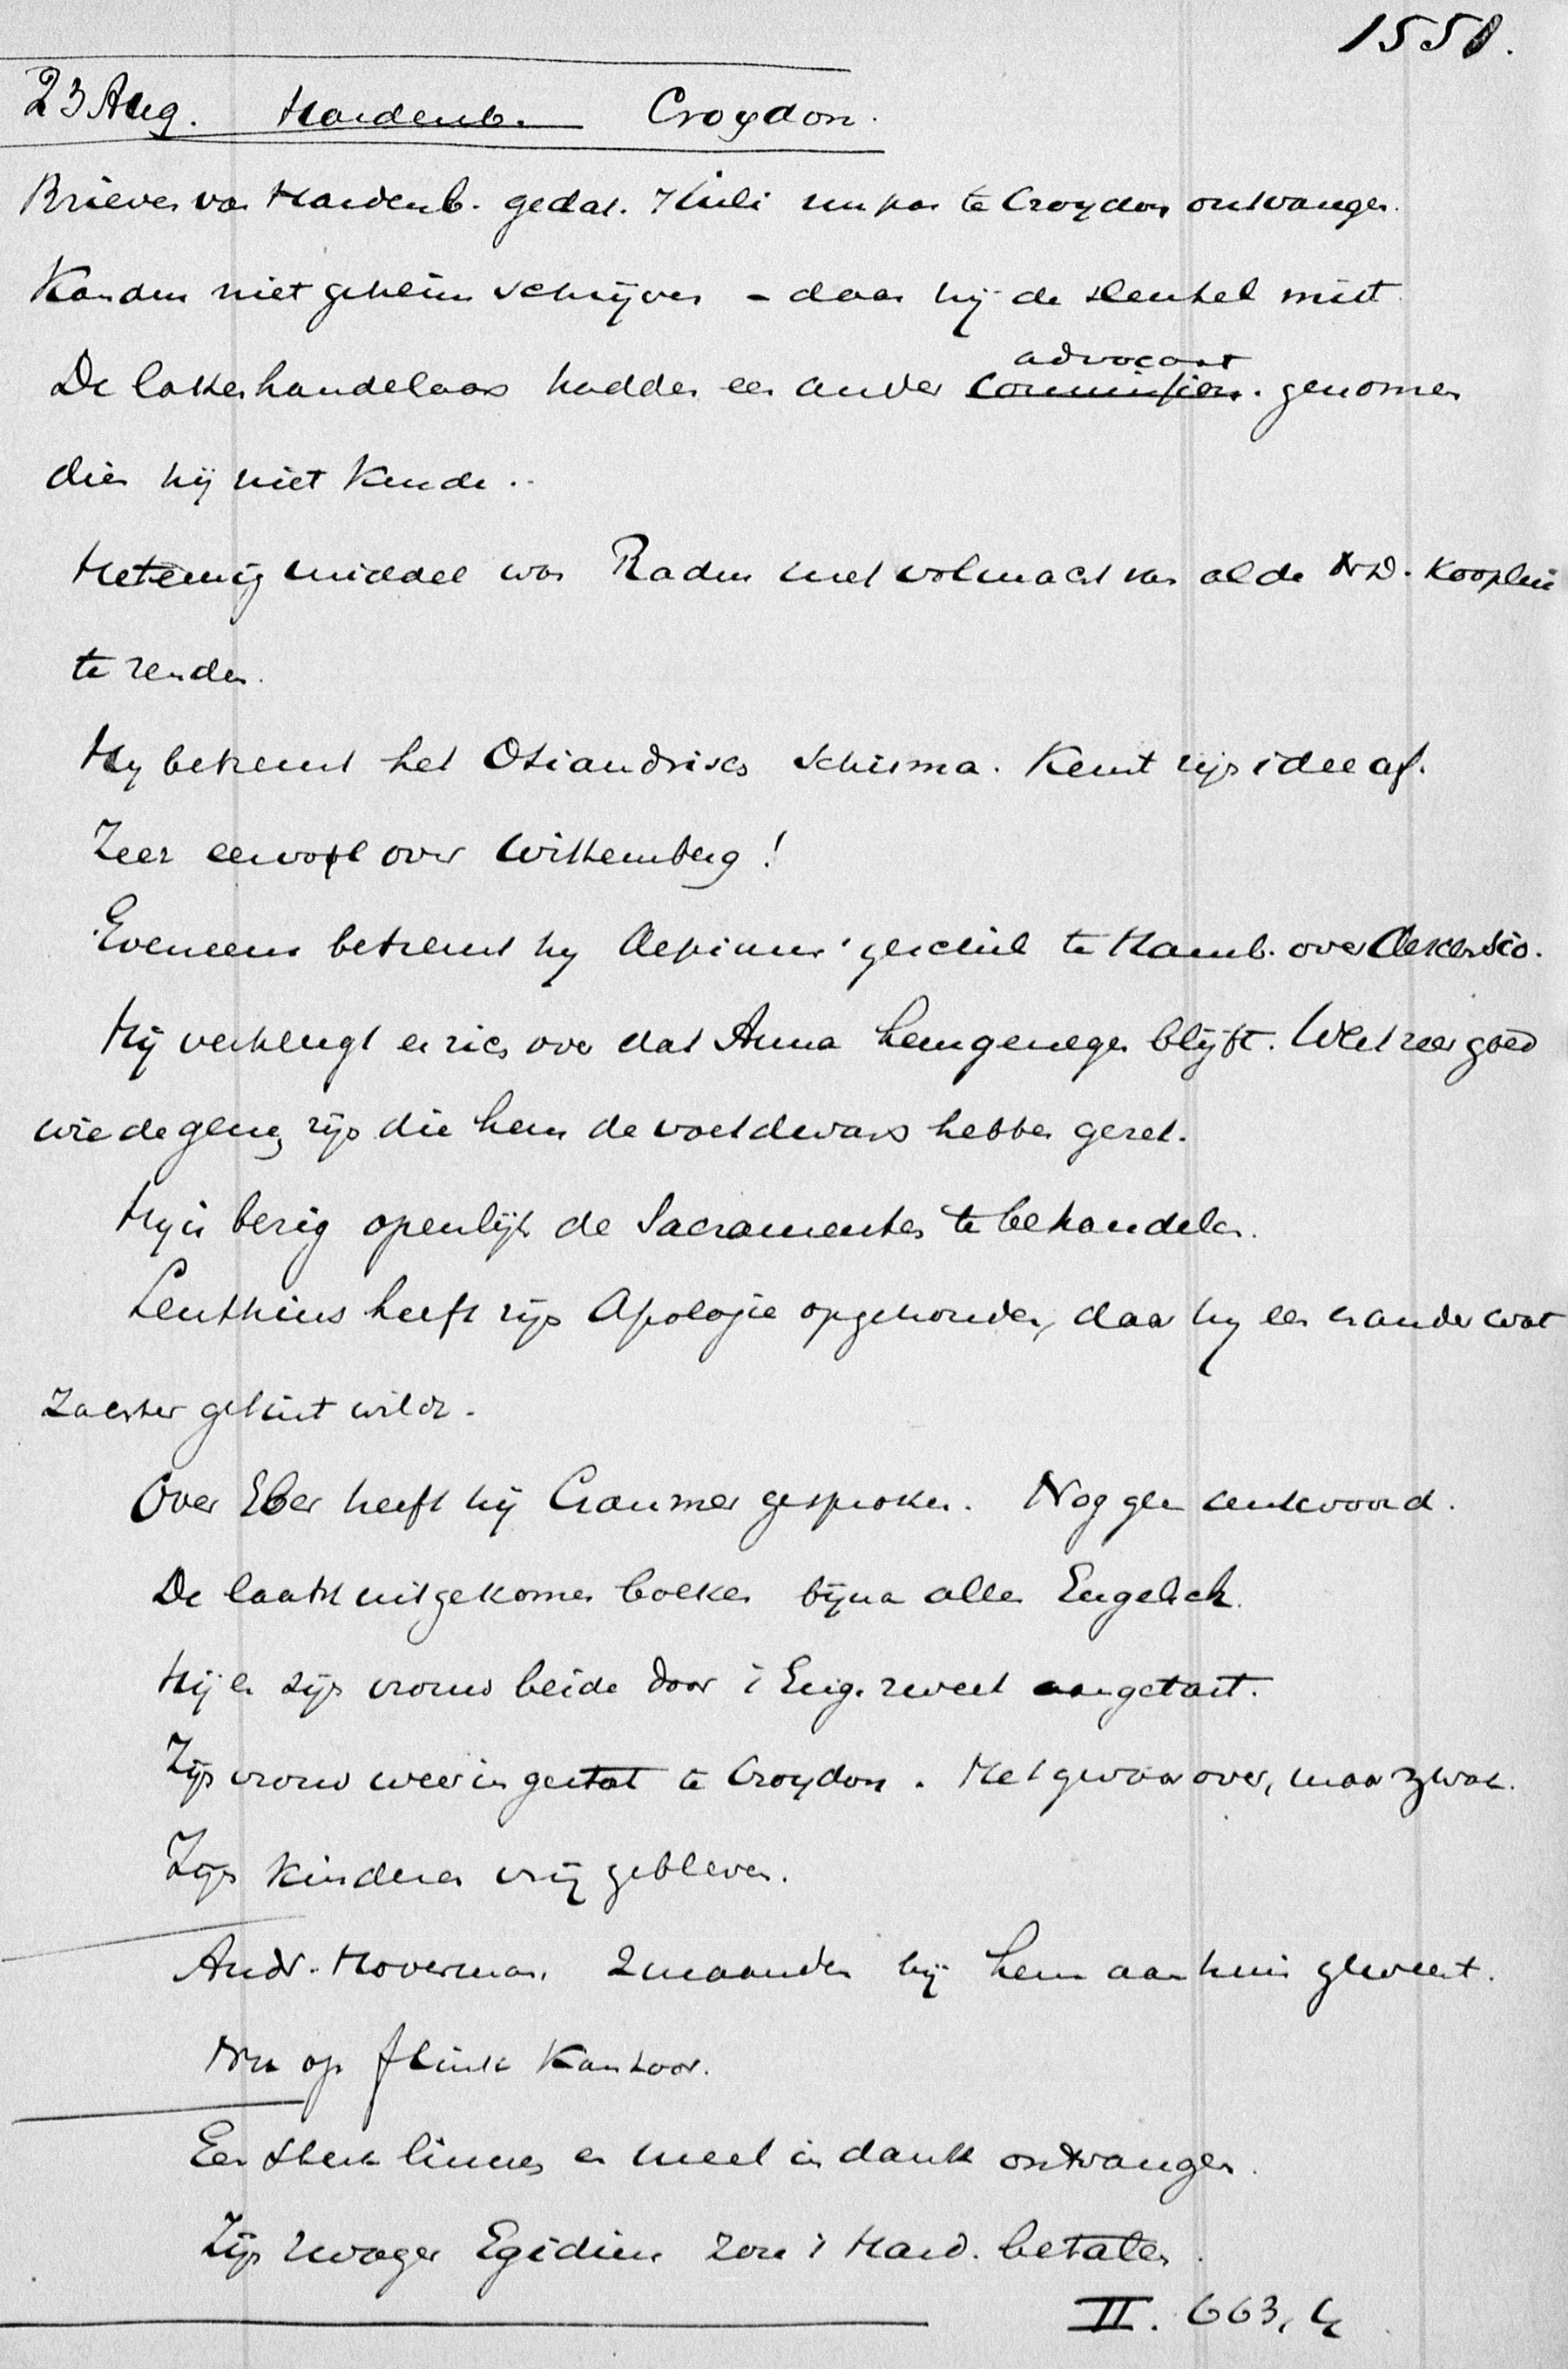 1551.
23 Aug. Hardenb. Croydon.
Brieven van Hardenb. gedat. 7 Juli nu pas te Croydon ontvangen.
Konden niet geheim schrijven - daar hij de sleutel mist
De lakenhandelaars hadden een ander commission. advocaat genomen
dien hij niet kende.
Het eenig middel was Raden met volmacht van al de N.D. kooplui
te zenden.
Hy betreurt het Osiandrisch schisma. Keurt zijn idee af.
Zeer eervol over Wittemberg!
Eveneens betreurt hy Aepinus' geschil te Hamb. over descensio.
Hij verheugt er zich over dat Anna hem genegen blijft. Weet zeer goed
wie degene zijn die hem de voet dwars hebben gezet.
Hij is bezig openlijk de Sacramenten te behandelen.
Lenthius heeft zijn Apologie opgehouden, daar hy een en ander wat
zachter getint wilde.
Over Eber heeft hij Cranmer gesproken. Nog geen antwoord.
De laatst uitgekomen boeken bijna allen Engelsch.
Hij en zijn vrouw beide door 't Eng. zweet aangetast.
Zijn vrouw weer ingestort te Croydon. Het gevaar over, maar zwak.
Zijn kinderen vrij gebleven.
Andr. Hoverman. 2 maanden bij hem aan huis geweest.
Nu op flink kantoor.
Een stuk linnen en meel in dank ontvangen.
Zijn zwager Egidius zou 't Hard. betalen.
II. 663, 4